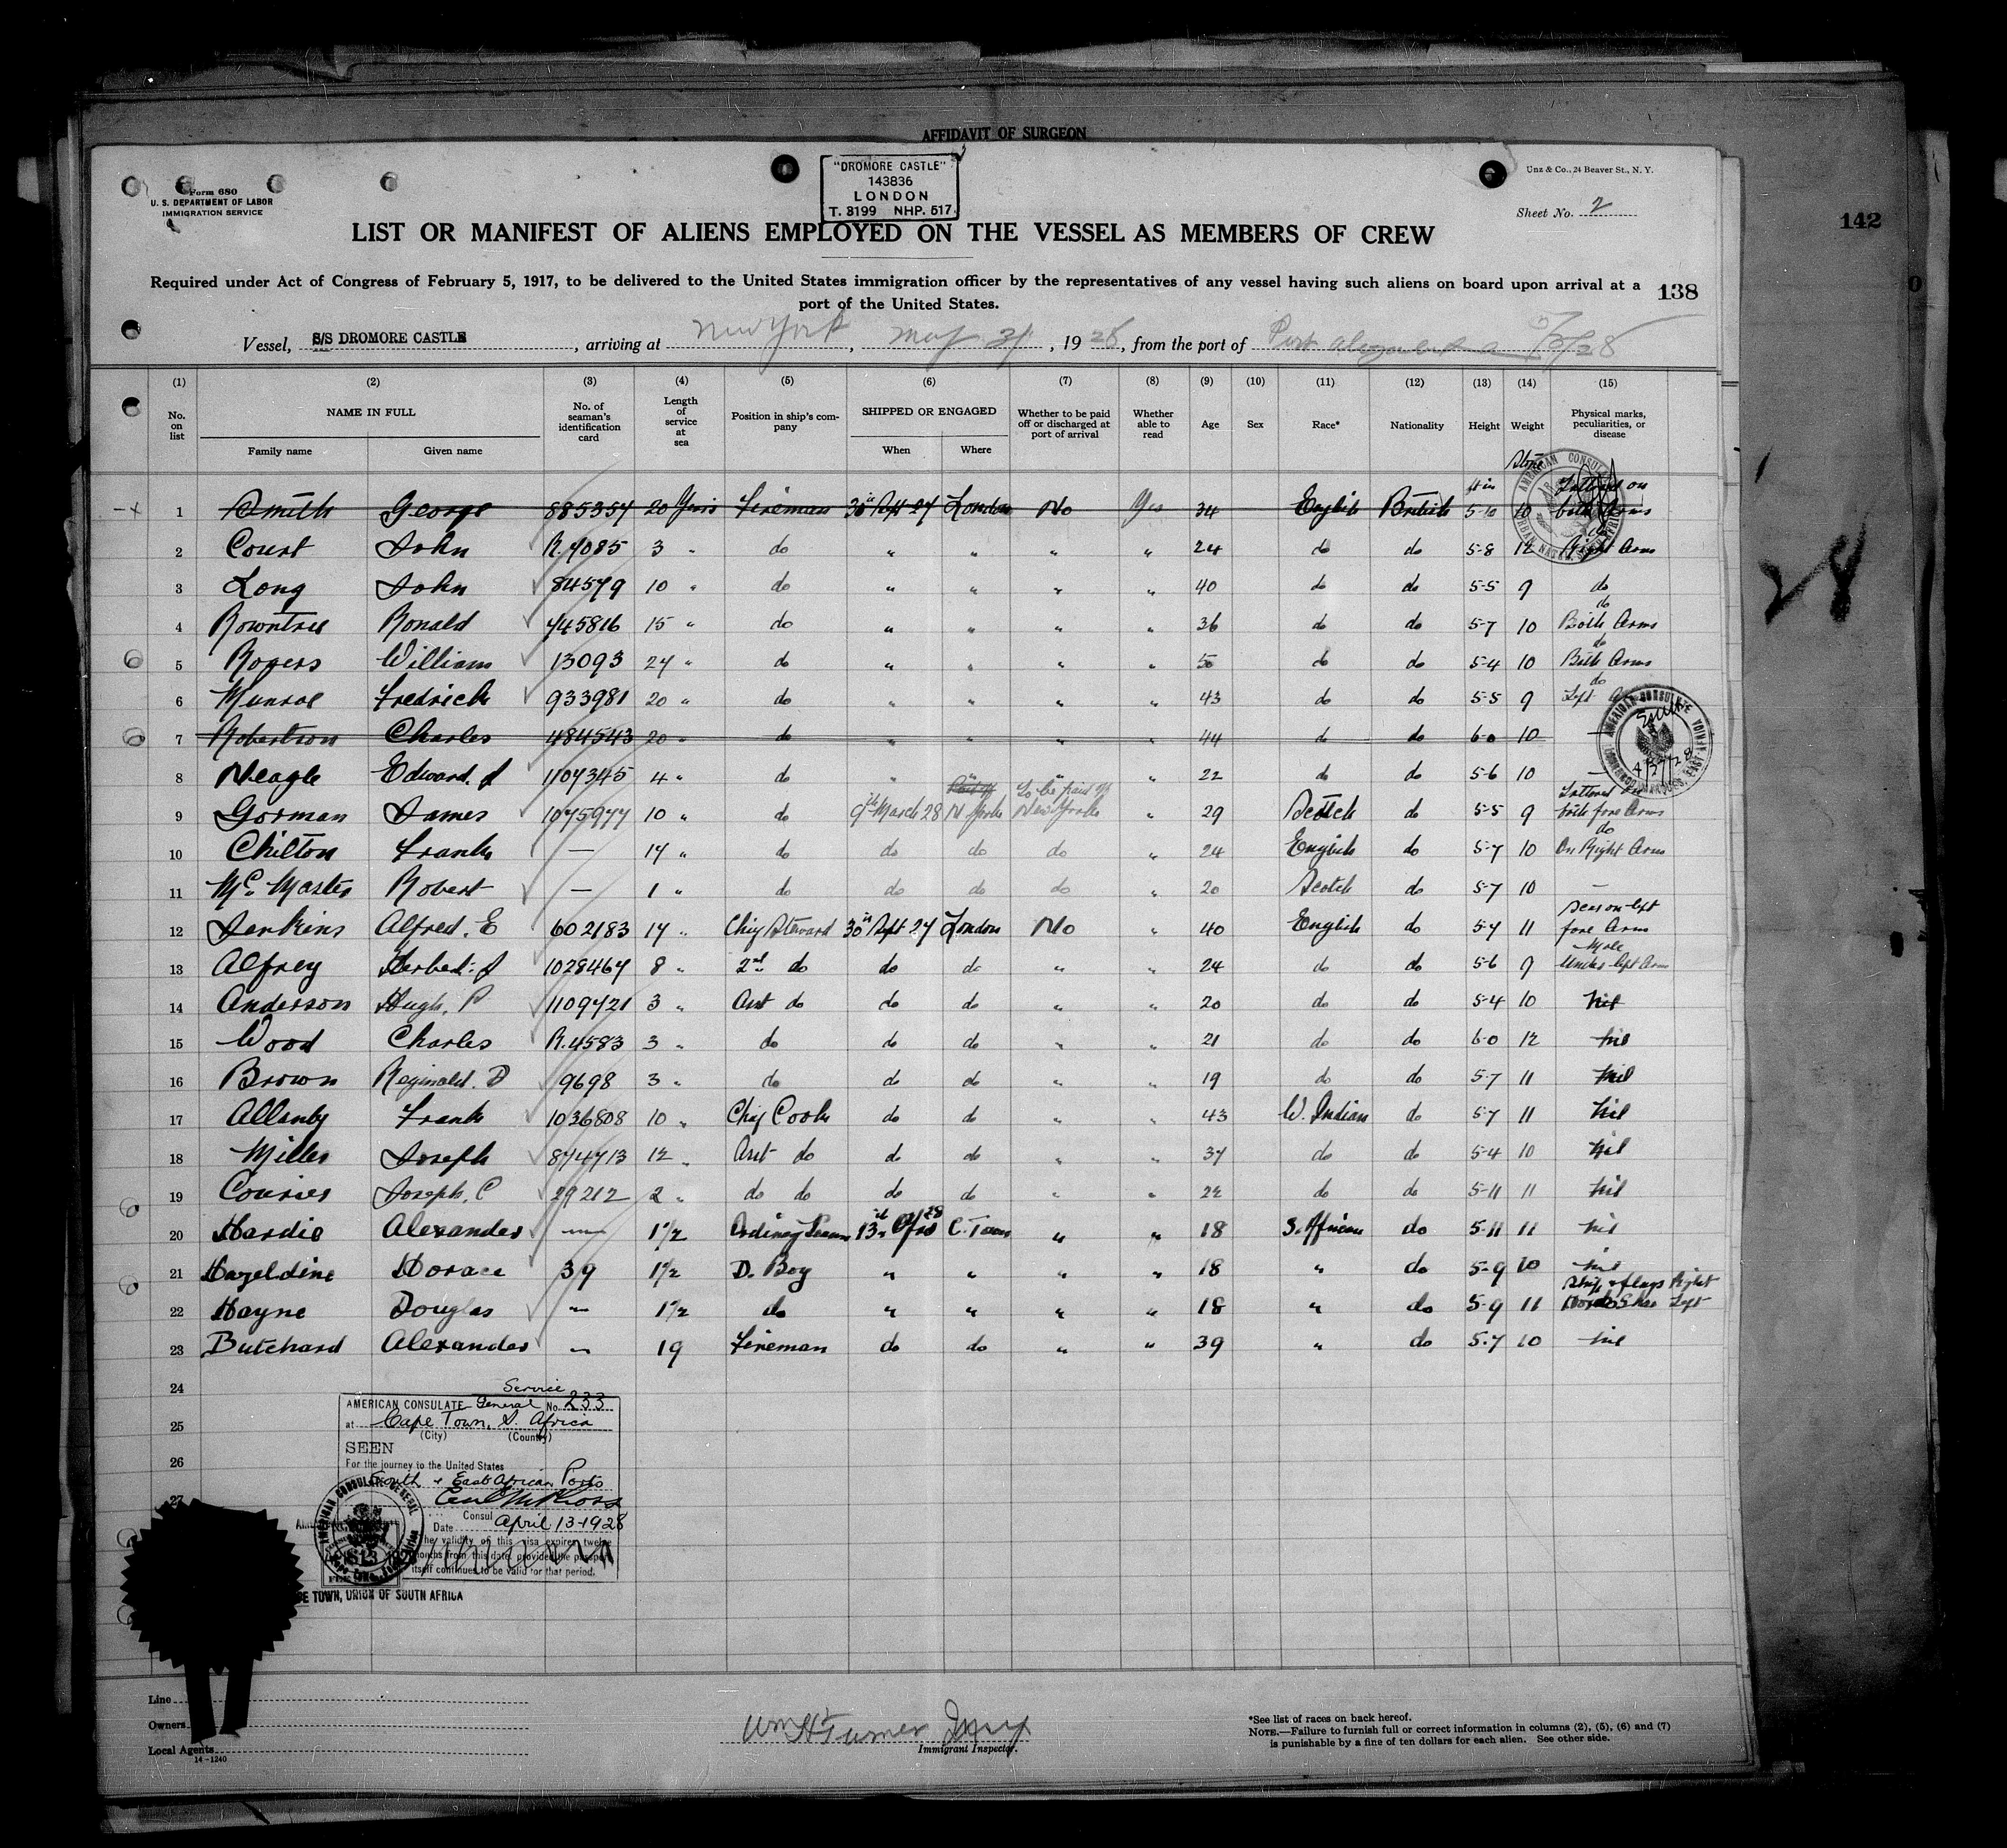 AFFIDAVIT OF SURGEON
Form 680
U. S. DEPARTMENT OF LABOR
IMMIGRATION SERVICE
"DROMORE CASTLE"
143836
LONDON
T. 8199 NHP. 517.
Unz & Co., 24 Beaver St., N. Y.
Sheet No. 2
142
LIST OR MANIFEST OF ALIENS EMPLOYED ON THE VESSEL AS MEMBERS OF CREW
Required under Act of Congress of February 5, 1917, to be delivered to the United States immigration officer by the representatives of any vessel having such aliens on board upon arrival at a
port of the United States.
138
Vessel, S/S DROMORE CASTLE, arriving at New York, May 31, 1928, from the port of Port Elizabeth
(1) (2) (3) (4) (5) (6) (7) (8) (9) (10) (11) (12) (13) (14) (15)
No. on list NAME IN FULL Family name Given name No. of seaman's identification card Length of service at sea Position in ship's company SHIPPED OR ENGAGED When Where Whether to be paid off or discharged at port of arrival Whether able to read Age Sex Race* Nationality Height Weight Physical marks, peculiarities, or disease
Stone
1 Smith George 885354 20 Years Fireman 30th Sept 27 London No Yes 34 English British 5-10 10 Tattooed on both Arms
2 Court John R.7085 3 " do " " " " 24 do do 5-8 12 do Right Arm
3 Long John 84579 10 " do " " " " 40 do do 5-5 9 do
4 Rowntree Ronald 745816 15 " do " " " " 36 do do 5-7 10 do Both Arms
5 Rogers William 13093 27 " do " " " " 50 do do 5-4 10 do Both Arms
6 Munroe Fredrick 933981 20 " do " " " " 43 do do 5-5 9 do Left
7 Robertson Charles 484543 20 " do " " " " 44 do do 6-0 10 —
8 Neagle Edward. J 1107345 4 " do " " " " 22 do do 5-6 10 —
9 Gorman James 1075977 10 " do 9th March 28 N York To be paid off New York " 29 Scotch do 5-5 9 Tattooed on both fore Arms
10 Chilton Frank — 17 " do do do do " 24 English do 5-7 10 do On Right Arm
11 Mc. Master Robert — 1 " do do do do " 20 Scotch do 5-7 10 —
12 Jenkins Alfred. E 602183 17 " Chief Steward 30th Sept 27 London No " 40 English do 5-7 11 Scar on left fore Arm
13 Alfrey Herbert. J 1028467 8 " 2nd do do do " " 24 do do 5-6 9 Mole Under left Arm
14 Anderson Hugh. P 1109721 3 " Asst do do do " " 20 do do 5-4 10 nil
15 Wood Charles R.4583 3 " do do do " " 21 do do 6-0 12 nil
16 Brown Reginald. D 9698 3 " do do do " " 19 do do 5-7 11 nil
17 Allanby Frank 1036808 10 " Chief Cook do do " " 43 W. Indian do 5-7 11 nil
18 Miller Joseph 874713 12 " Asst do do do " " 37 do do 5-4 10 nil
19 Courier Joseph. C 29212 2 " do do do do " " 22 do do 5-11 11 nil
20 Hardie Alexander — 1 1/2 Ordinary Seaman 13th April 28 C. Town " " 18 S. African do 5-11 11 nil
21 Hazeldine Horace 39 1 1/2 D. Boy " " " " 18 " do 5-9 10 nil
22 Hayne Douglas — 1 1/2 do " " " " 18 " do 5-9 11 Ship & flags Right Left
23 Butchard Alexander — 19 Fireman do do " " 39 " do 5-7 10 nil
24
25
26
27
28
AMERICAN CONSULATE General Service No. 233
at Cape Town, S. Africa
(City) (Country)
SEEN
For the journey to the United States
South & East African Ports
Consul
Date April 13-1928
The validity of this visa expires twelve
months from this date, provided the passport
itself continues to be valid for that period.
AMERICAN CONSULATE GENERAL
CAPE TOWN, UNION OF SOUTH AFRICA
AMERICAN CONSULATE
4/27/28
Line
Owners
Local Agents
14-1240
Wm H Turner
Immigrant Inspector.
*See list of races on back hereof.
NOTE.—Failure to furnish full or correct information in columns (2), (5), (6) and (7)
is punishable by a fine of ten dollars for each alien. See other side.